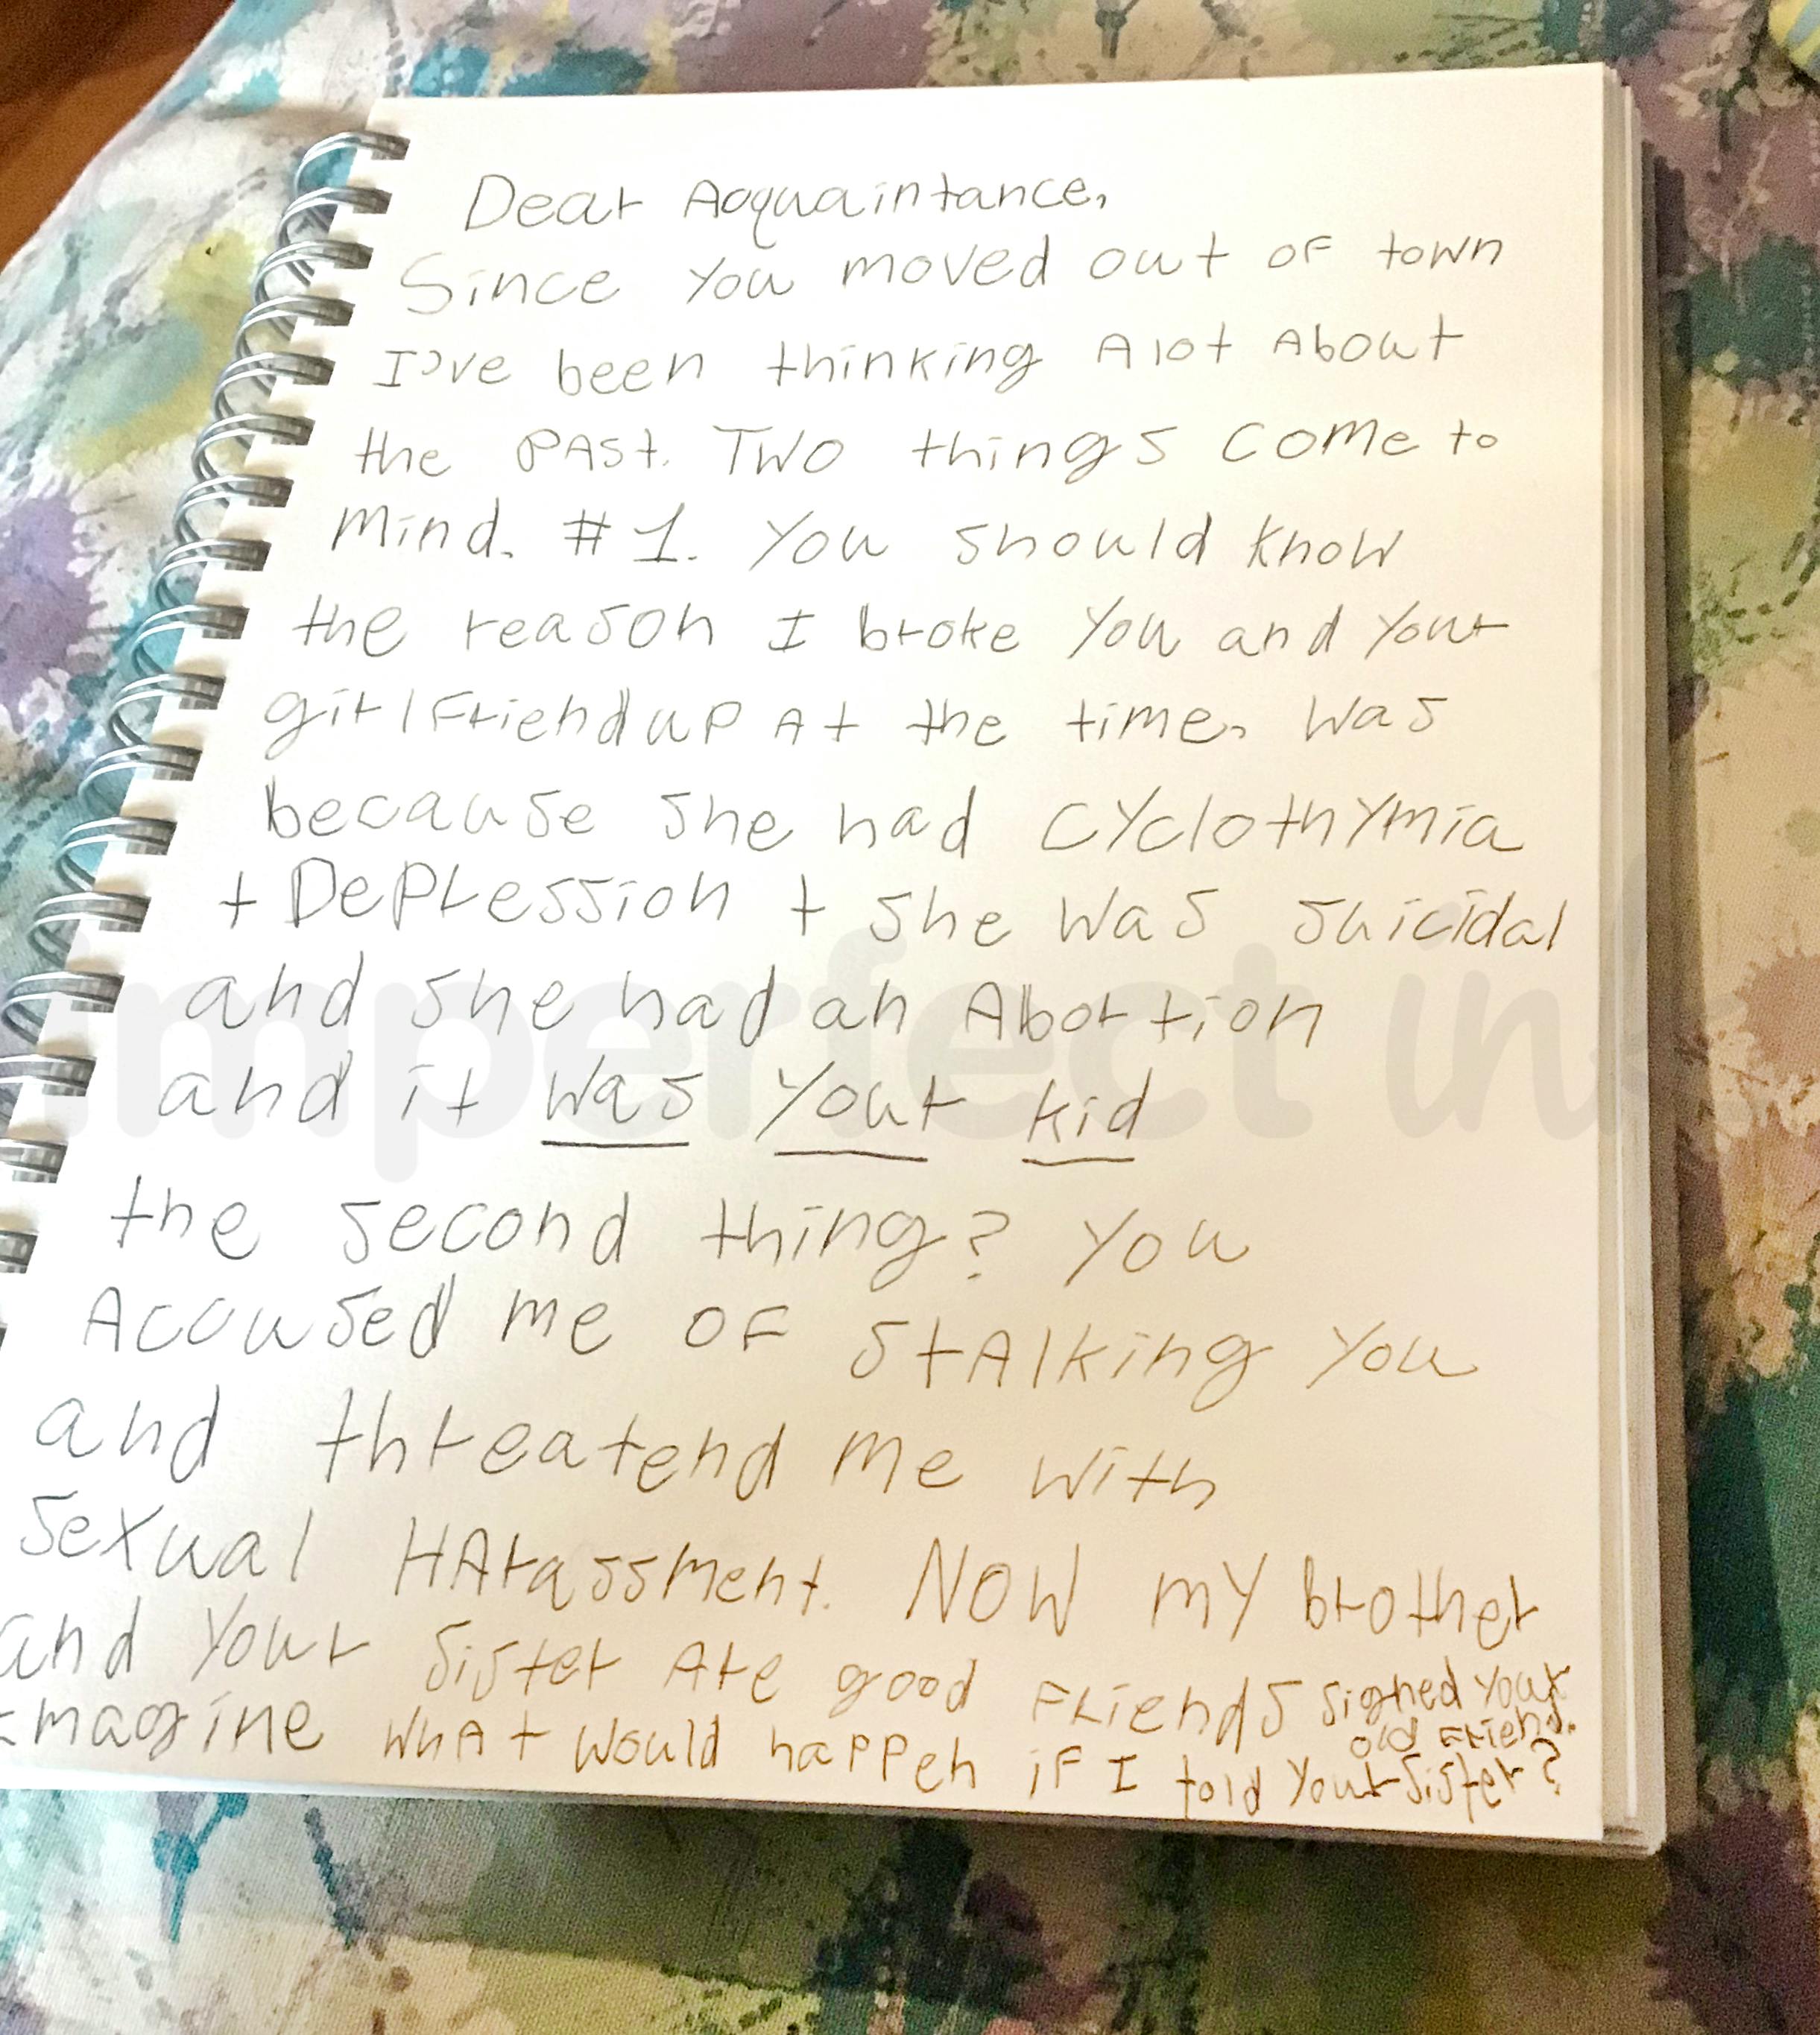 Dear Acquaintance,
Since you moved out of town
I've been thinking Alot About
the past. Two things come to
mind. #1. You should know
the reason I broke you and your
girlfriend up At the time, was
because she had cyclothymia
+ Depression + she was suicidal
and she had an Abortion
and it was your kid
the second thing? You
Accused me of stalking you
and threatend me with
sexual HArassment. Now my brother
and your sister Are good Friends
Imagine whAt would happen if I told your sister?
signed your
old Friend.
imperfect in